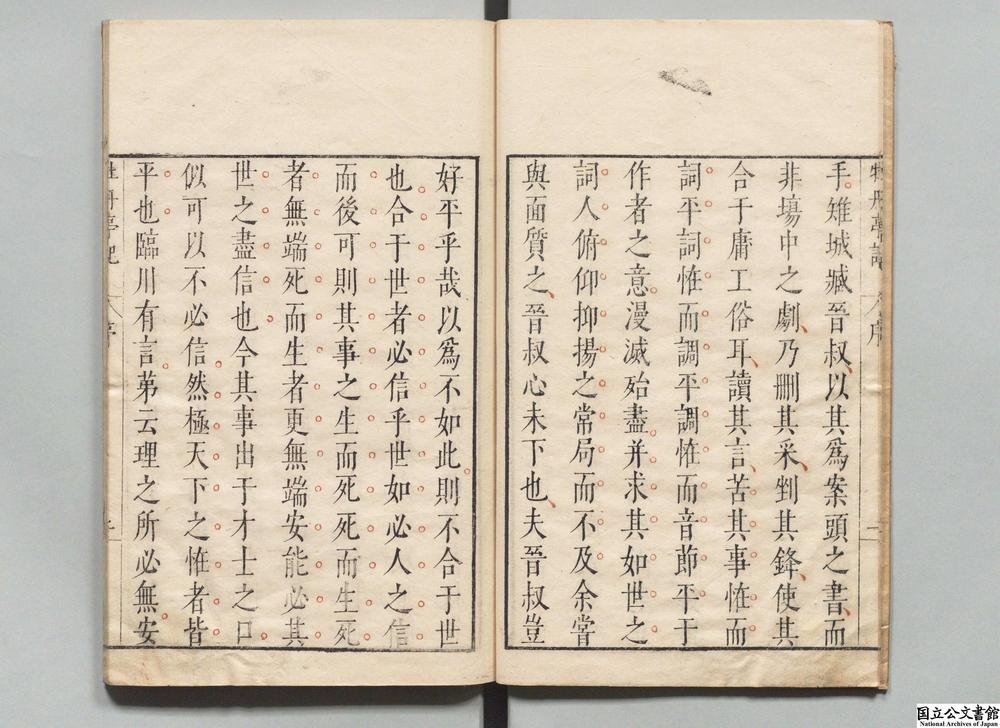 牡丹亭記 序 二
手雉城臧晉叔以其爲案頭之書而
非塲中之劇乃刪其采剉其鋒使其
合于庸工俗耳讀其言苦其事恠而
詞平詞恠而調平調恠而音節平于
作者之意漫滅殆盡并求其如世之
詞人俯仰抑揚之常局而不及余嘗
與面質之晉叔心未下也夫晉叔豈
好平乎哉以爲不如此則不合于世
也合于世者必信乎世如必人之信
而後可則其事之生而死死而生死
者無端死而生者更無端安能必其
世之盡信也今其事出于才士之口
似可以不必信然極天下之恠者皆
平也臨川有言第云理之所必無安
牡丹亭記 序
国立公文書館
National Archives of Japan